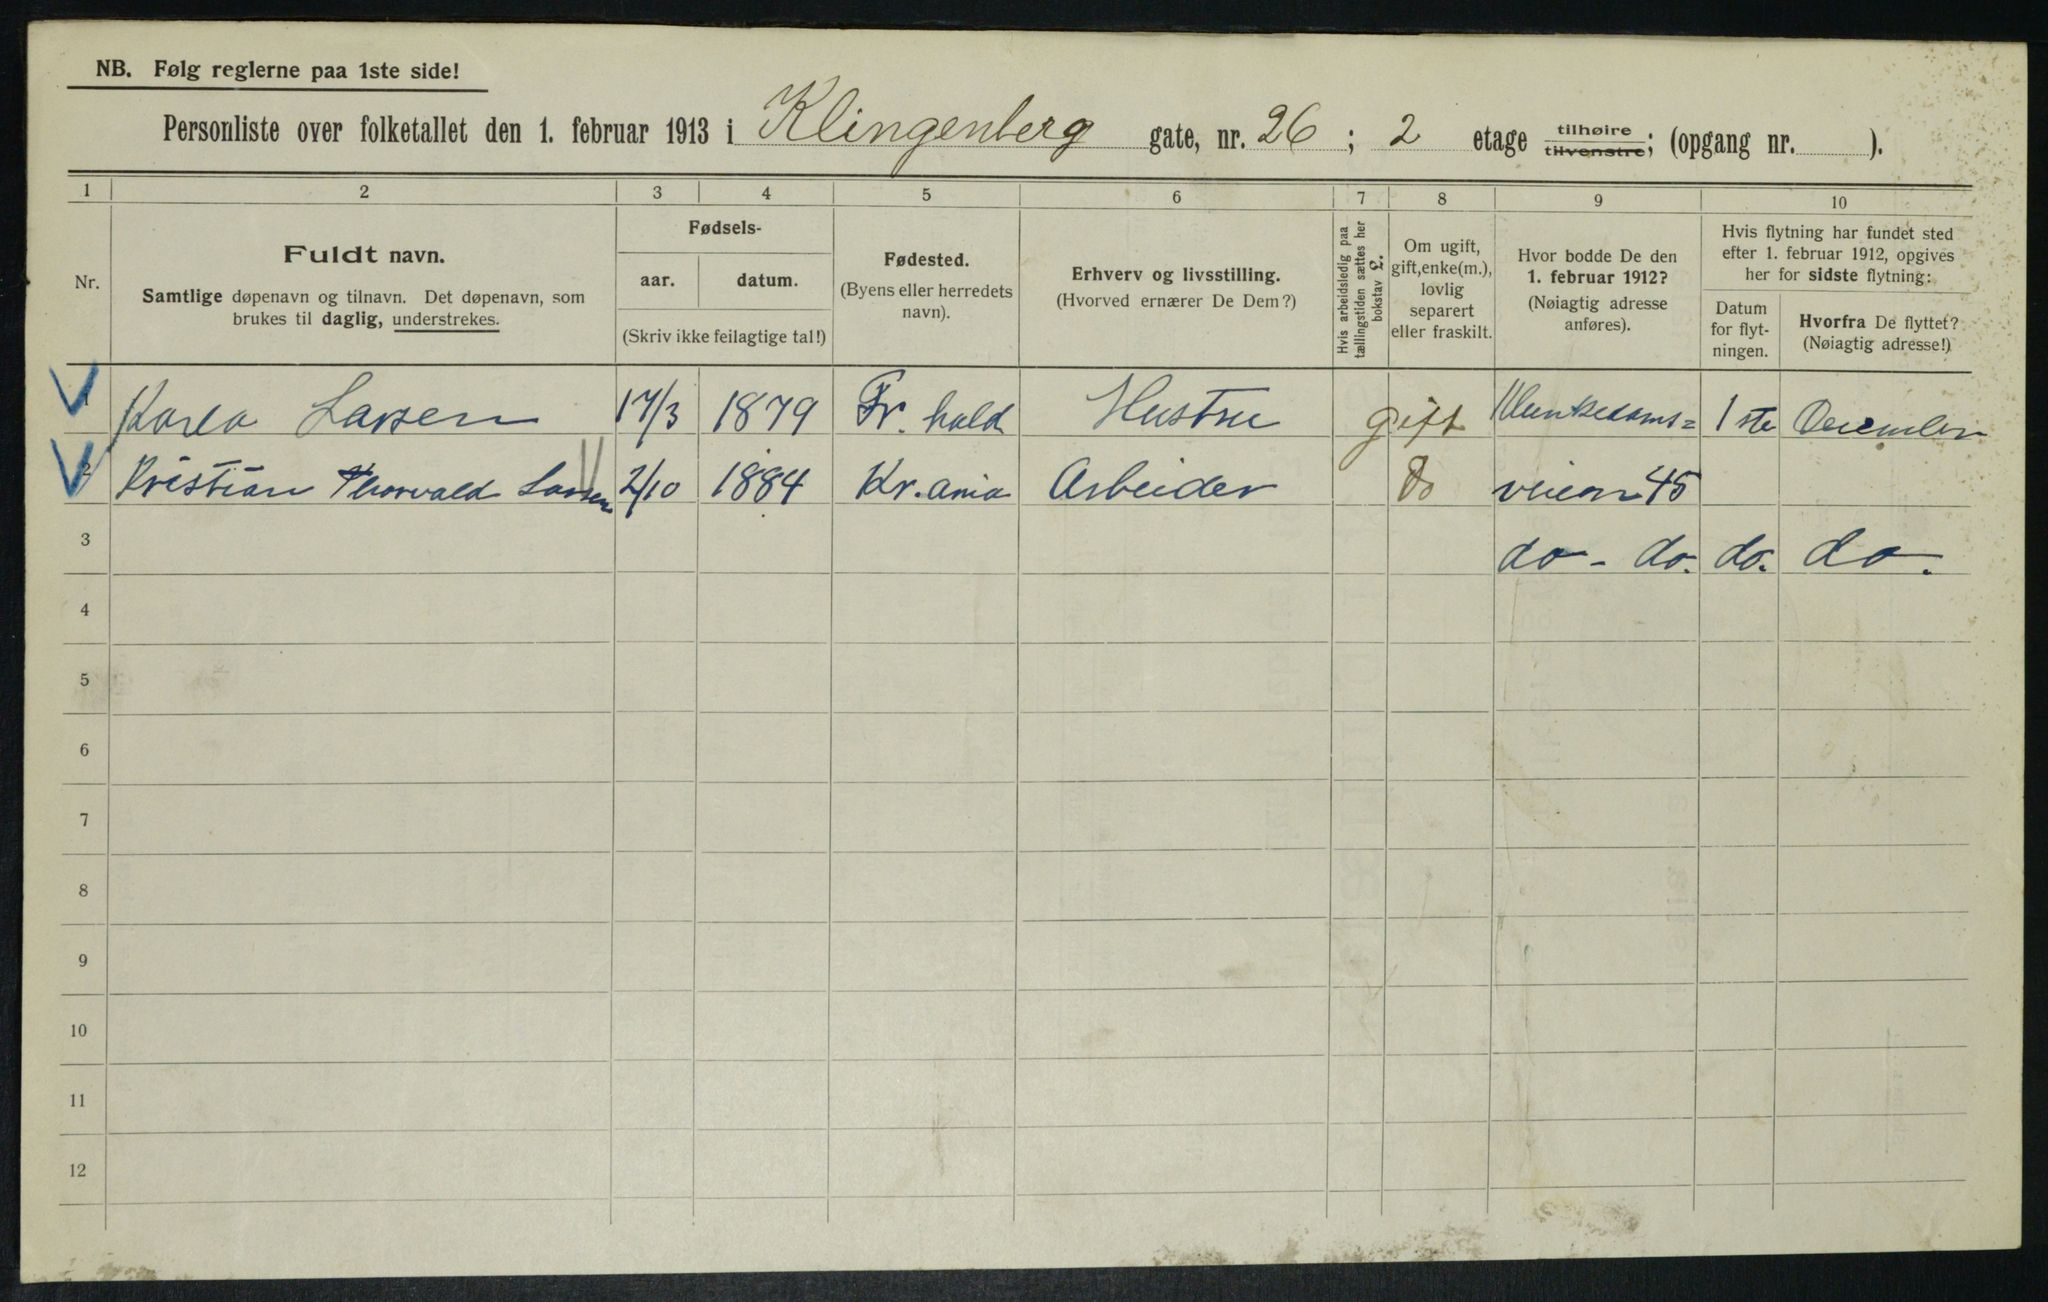 NB. Følg reglerne paa 1ste side!
Personliste over folketallet den 1. februar 1913 i Klingenberg gate, nr. 26 ; 2 etage tilhøire tilvenstre; (opgang nr. ).
1 2 3 4 5 6 7 8 9 10
Nr.
Fuldt navn.
Samtlige døpenavn og tilnavn. Det døpenavn, som
brukes til daglig, understrekes.
Fødsels-
aar. datum.
(Skriv ikke feilagtige tal!)
Fødested.
(Byens eller herredets
navn).
Erhverv og livsstilling.
(Hvorved ernærer De Dem?)
Hvis arbeidsledig paa
tællingstiden sættes her
bokstav L.
Om ugift,
gift, enke(m.),
lovlig
separert
eller fraskilt.
Hvor bodde De den
1. februar 1912?
(Nøiagtig adresse
anføres).
Hvis flytning har fundet sted
efter 1. februar 1912, opgives
her for sidste flytning:
Datum
for flyt-
ningen.
Hvorfra De flyttet?
(Nøiagtig adresse!)
1 Karla Larsen 17/3 1879 Fr. hald Hustru gift Munkedams= 1 ste December
2 Kristian Thorvald Larsen 2/10 1884 Kr.ania Arbeider do veien 45
3 do - do. do. do.
4
5
6
7
8
9
10
11
12